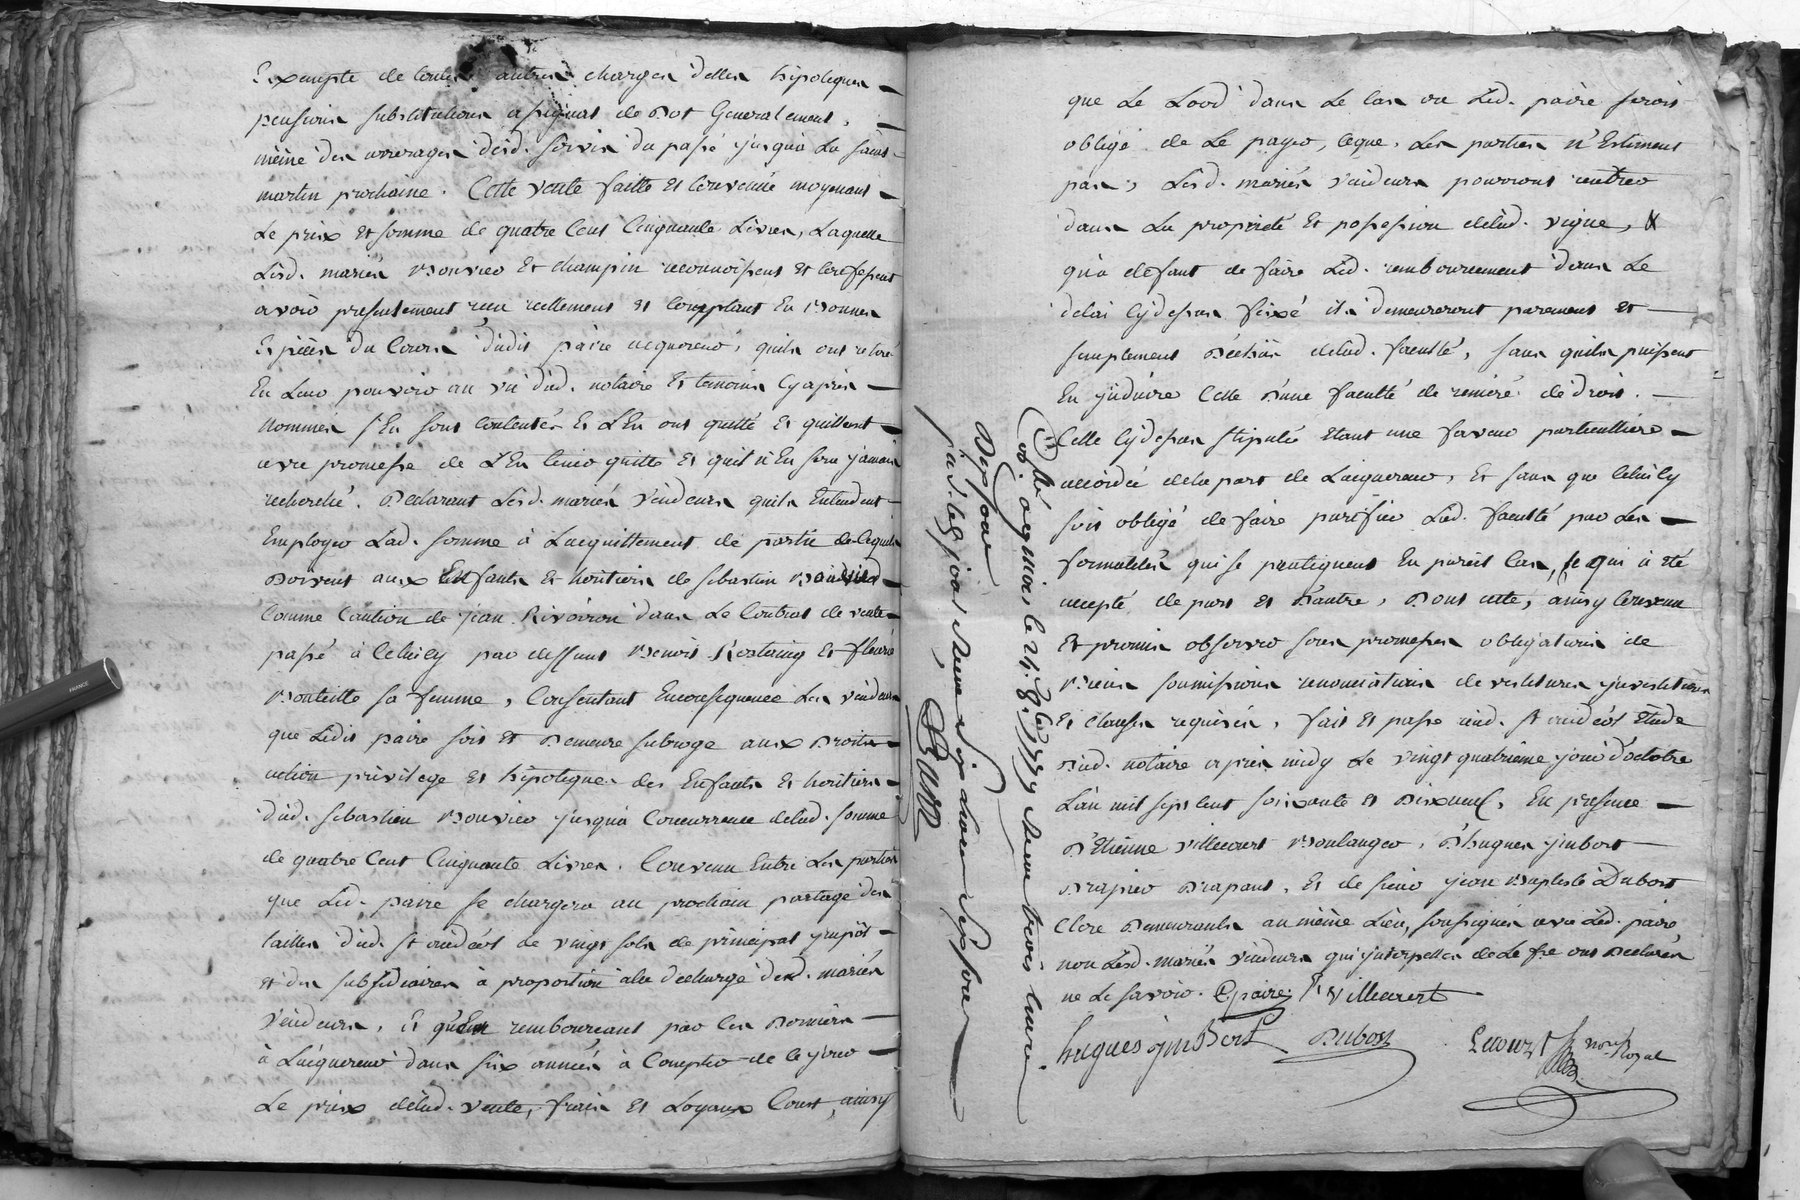 Exempte de toutes autres charges dettes hipoteques
pensions substitutions assignat de Dot Generalement,
même des arrerages desd. servis du passé jusqua La saint
martin prochaine. Cette vente faitte et Convenüe moyenant
Le prix et somme de quatre Cent Cinquante Livres, Laquelle
Lesd. mariés Bouvier et champin reconnoissent et Confessent
avoir presentement reçu reellement et Comptant En Bonnes
Espèces du Cours dudit paire acquereur, quils ont retiré
En Leur pouvoir au vû dud. notaire et temoins Cyaprès
Nommés s'En sont Contentés et L'En ont quitté et quittent
avec promesse de L'En tenir quitte et quil n'En sera jamais
recherché. Declarent Lesd. mariés vendeurs quils Entendent
Employer Lad. somme à Lacquittement de partie de Cequils
Doivent aux Enfants et heritiers de sebastien Bouvier
Comme Caution de jean Rivoiron dans Le Contrat de vente
passé à Celuicy par deffunt Benoit Rostaing et fleurie
Monteille sa femme, Consentant Enconsequence Les vendeurs
que Ledit paire soit et Demeure subrogé aux Droits
action privilege et hipoteques des Enfants et heritiers
dud. sebastien Bouvier jusqua Concurrence delad. somme
de quatre Cent Cinquante Livres. Convenu Entre Les parties
que Led. paire se chargera au prochain partage des
tailles dud. st andéol de vingt sols de principal impôt
et des subsidiaires à proportion ala decharge desd. mariés
vendeurs, Et qu'En remboursant par Ces Derniers
à Lacquereur dans six années à Compter de Ce jour
Le prix delad. vente, frais et Loyaux Cout, ainsy
que Le Lood dans Le Cas ou Led. paire seroit
obligé de Le payer, Ceque Les parties n'Estiment
pas, Lesd. mariés vendeurs pourront rentrer
dans La proprieté Et possession delad. vigne,
qu'a defaut de faire Led. remboursement dans Le
delai Cydessus fixé ils demeureront purement et
simplement Déchus delad. faculté, sans quils puissent
En jnduire Celle d'une faculté de reméré de droit.
Celle Cydessus stipulée Etant une faveur particulliere
accordée dela part de Lacquereur, Et sans que Celuicy
soit obligé de faire purifier Lad. faculté par Les
formalités qui se pratiquent En pareil Cas, Ce qui à Eté
accepté de part et D'autre, Dont acte, ainsy Convenu
Et promis observer sous promesses obligations de
Biens soumissions renonciations de vestitures jnvestitures
Et clauses requises, fait et passé aud. st andéol Etude
dud. notaire après midy Le vingt quatrieme jour d'octobre
L'an mil sept Cent soixante et Dixneuf, En presence
D'Etienne villecourt Boulanger, D'hugues jmbert
Drapier Drapant, Et de sieur jean Baptiste Dubost
Clerc Demeurants au même Lieu, soussignés avec Led. paire,
non Lesd. mariés vendeurs qui jnterpellés de Le fre ont Declarés
ne Le savoir. C paire E villecourt
hugues jmBert Dubost Lecourt not. Royal